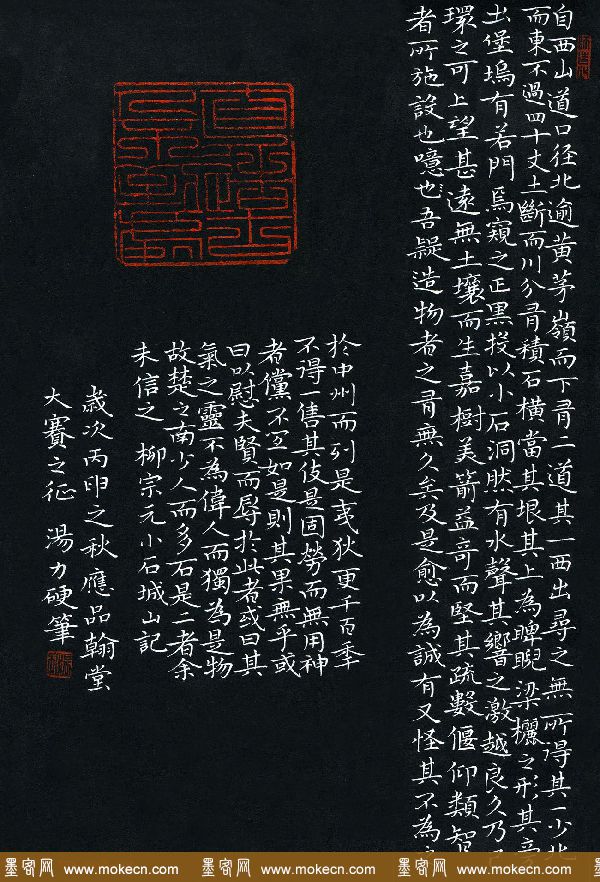 自西山道口径北逾黃茅嶺而下有二道其一西出尋之無所得其一少北
而東不過四十丈土斷而川分有積石橫當其垠其上為睥睨梁欐之形其
出堡塢有若門焉窺之正黑投以小石洞然有水聲其響之激越良久乃
環之可上望甚遠無土壤而生嘉樹美箭益奇而堅其疏數偃仰類智
者所施設也噫也吾疑造物者之有無久矣及是愈以為誠有又怪其不為
於中州而列是夷狄更千百年
不得一售其伎是固勞而無用神
者儻不宜如是則其果無乎或
曰以慰夫賢而辱於此者或曰其
氣之靈不為偉人而獨為是物
故楚之南少人而多石是二者余
未信之 柳宗元小石城山記
歲次丙申之秋應品翰堂
大賽之征 湯力硬筆
墨客网 www.mokecn.com 墨客网 www.mokecn.com 墨客网 www.mokecn.com